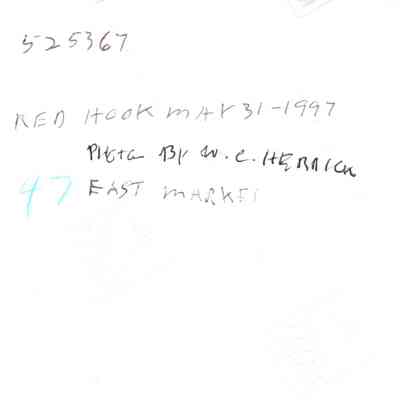 525367
RED HOOK MAY 31-1997
PHOTO BY W.C. HERRICK
47 EAST MARKET